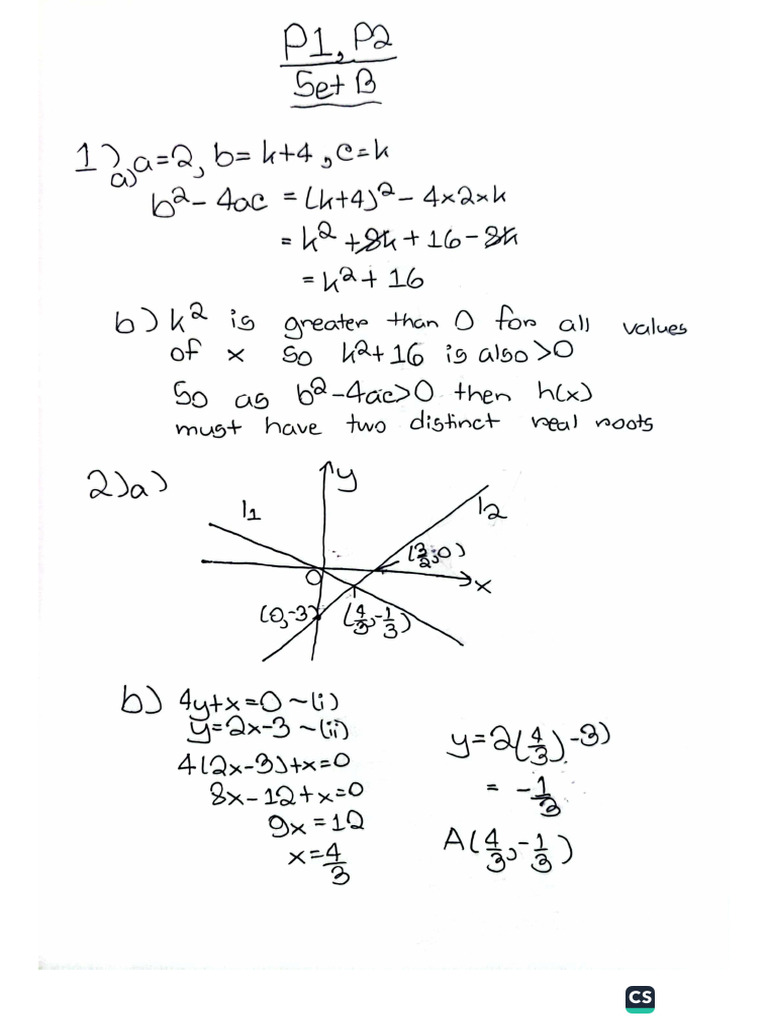 P1, P2
Set B
1) a) a=2, b= k+4, c=k
b²- 4ac = (k+4)² - 4×2×k
= k² +8k + 16 - 8k
= k²+ 16
b) k² is greater than 0 for all values
of x so k²+16 is also >0
So as b²-4ac>0 then h(x)
must have two distinct real roots
2)a)
y
l1
l2
(3/2, 0)
O
x
(0,-3)
(4/3, -1/3)
b) 4y+x=0 ~(i)
y=2x-3 ~(ii)
4(2x-3)+x=0
8x-12+x=0
9x=12
x=4/3
y=2(4/3)-3)
= -1/3
A(4/3, -1/3)
CS